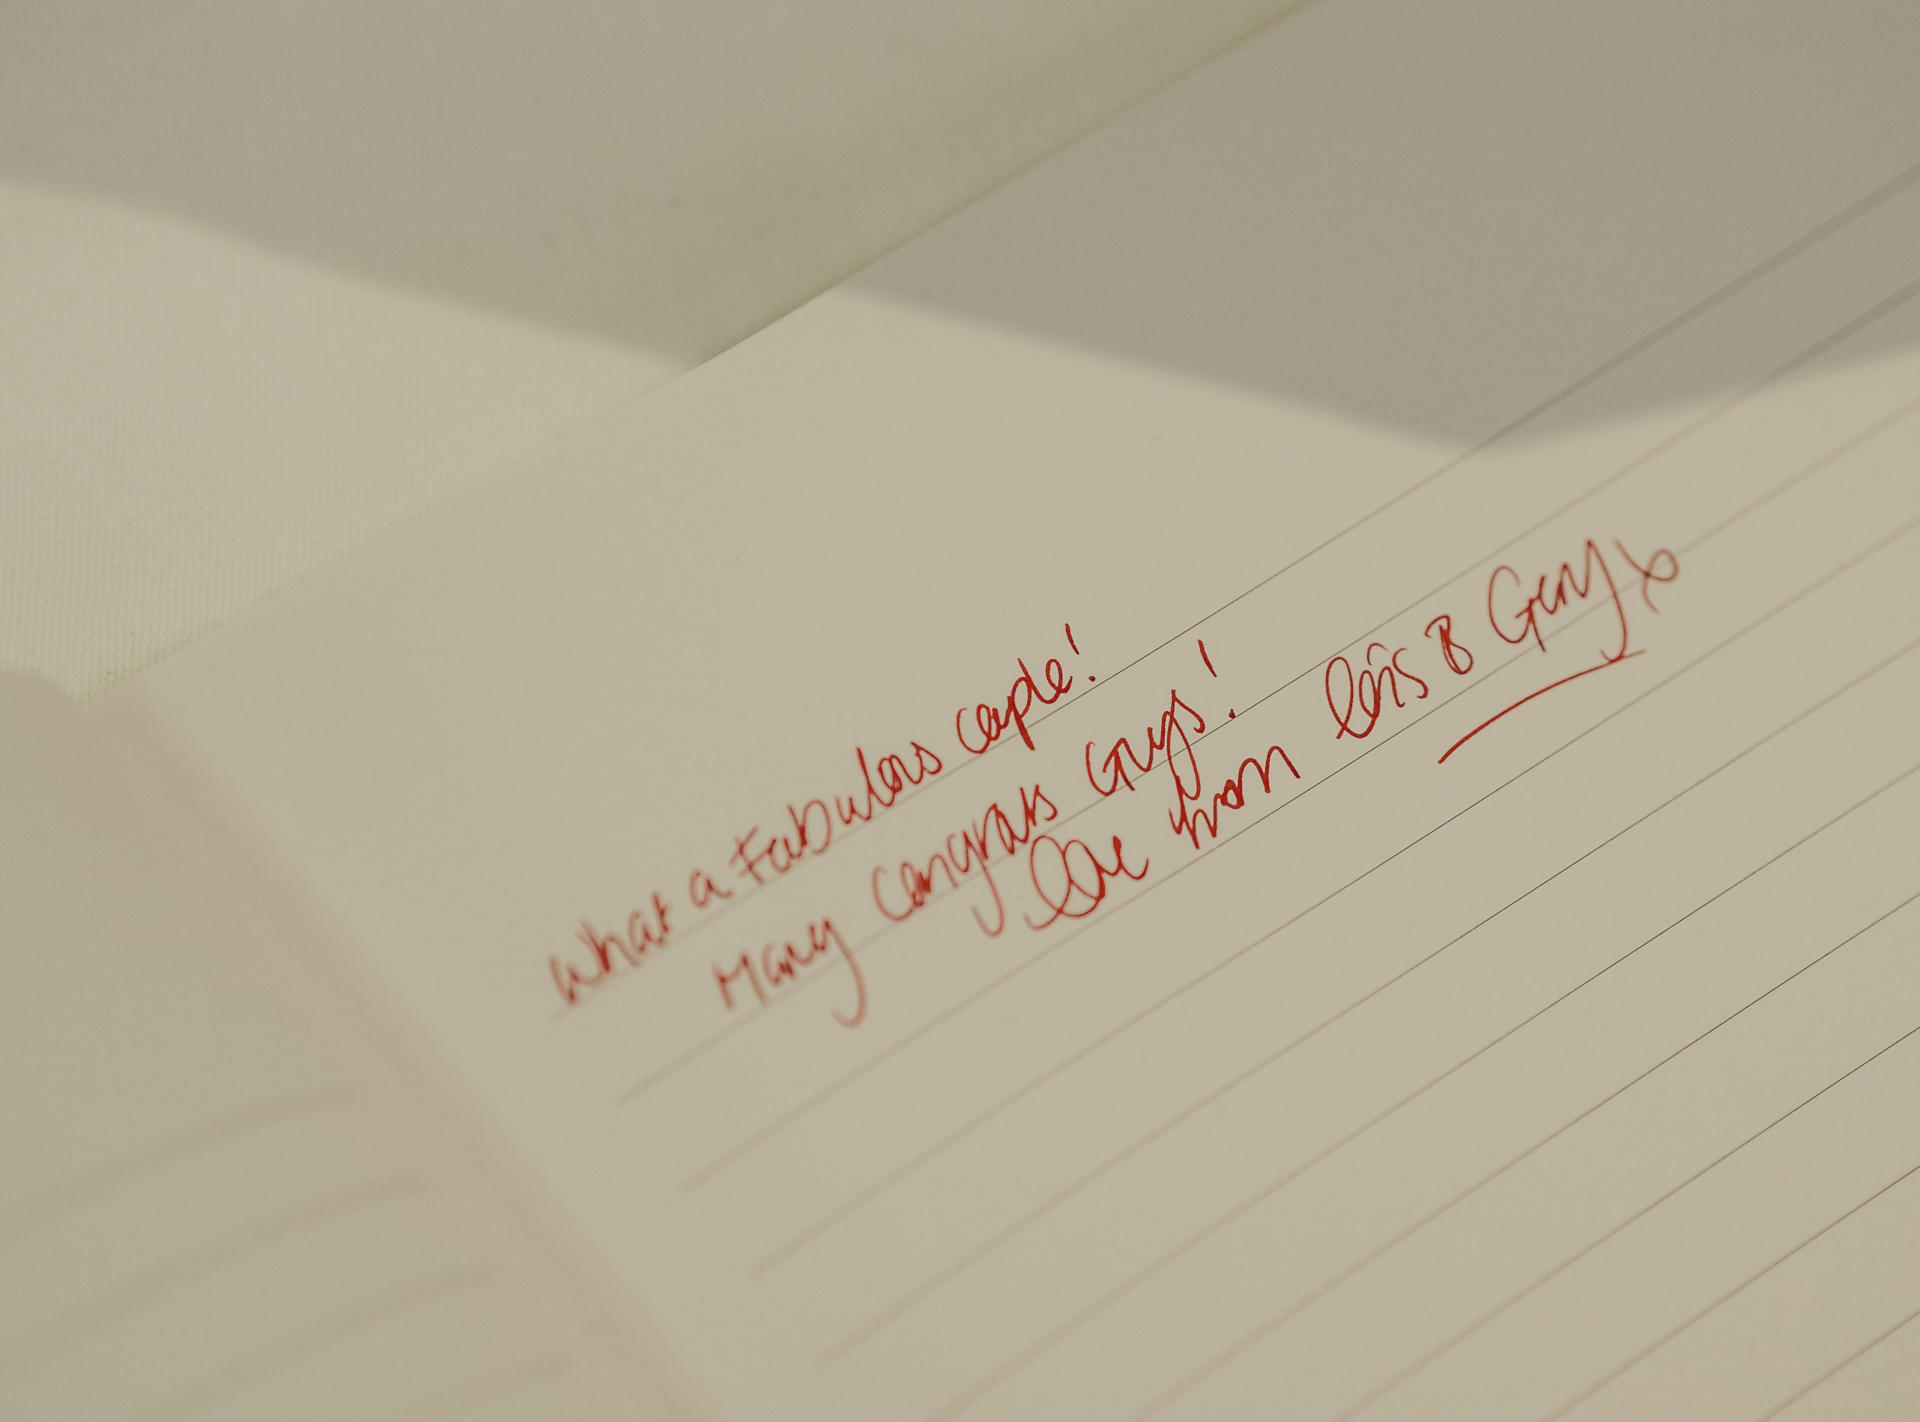 What a Fabulous couple!
Many congrats Guys!
love from Lois & Gerry x